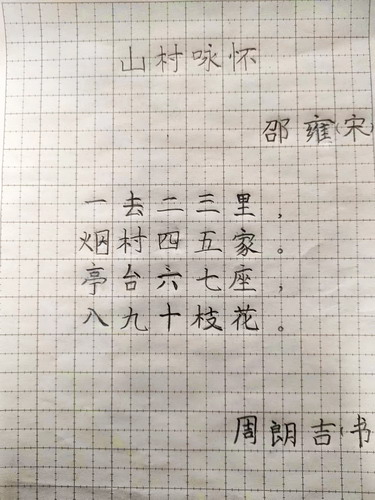 山村咏怀
邵雍（宋）
一去二三里，
烟村四五家。
亭台六七座，
八九十枝花。
周朗吉（书